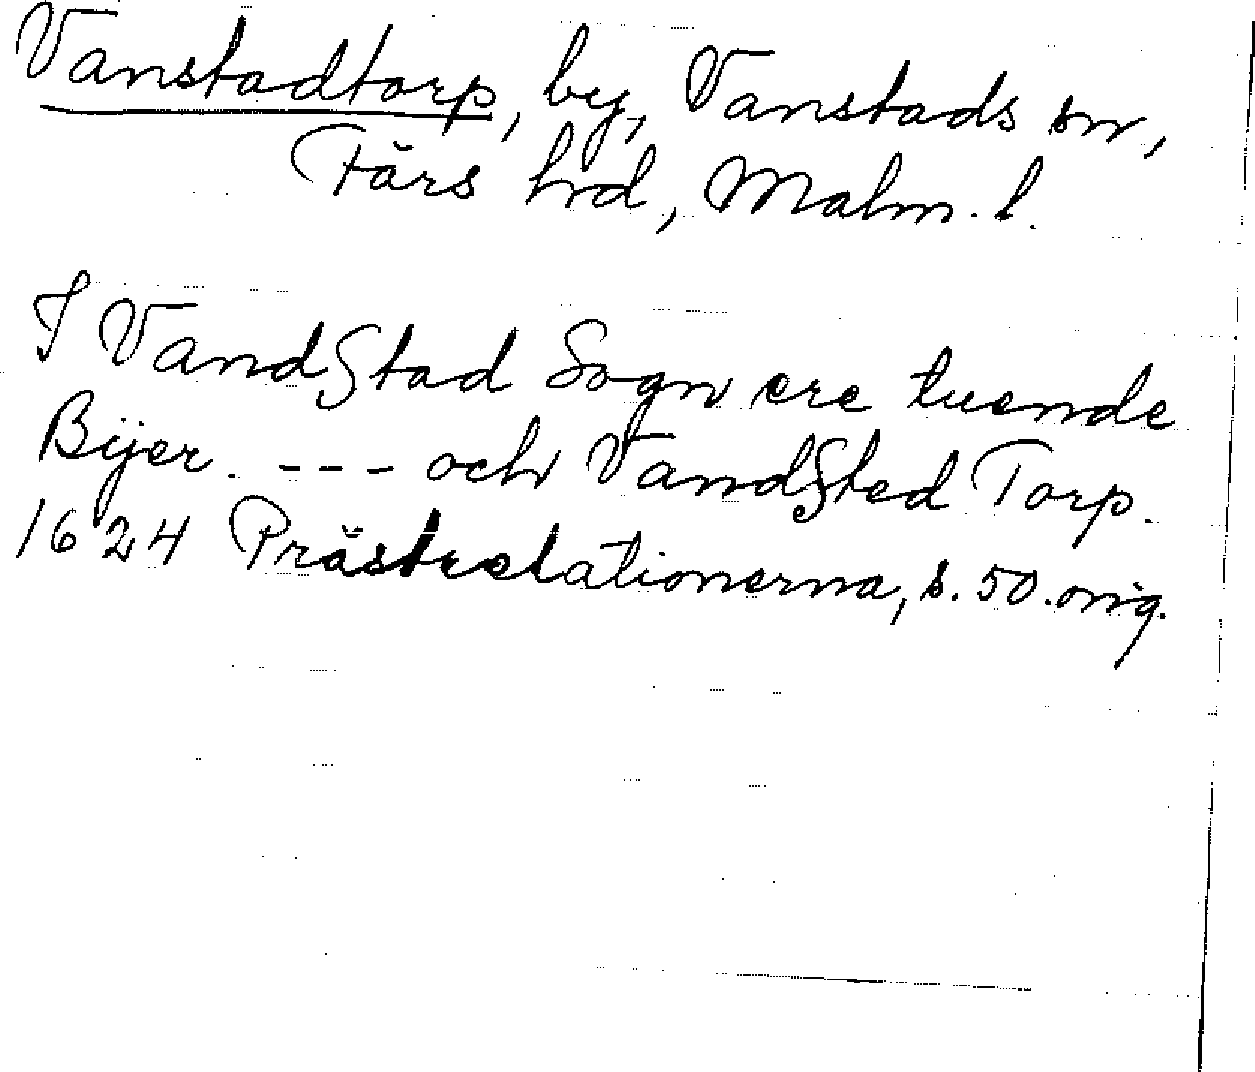 Vanstadtorp, by, Vanstads sn,
Färs hd, Malm. l.
I Vandstad Sogn ere tuende
Bijer. --- och Vandsted Torp.
1624 Prästrelationerna, s. 50. orig.